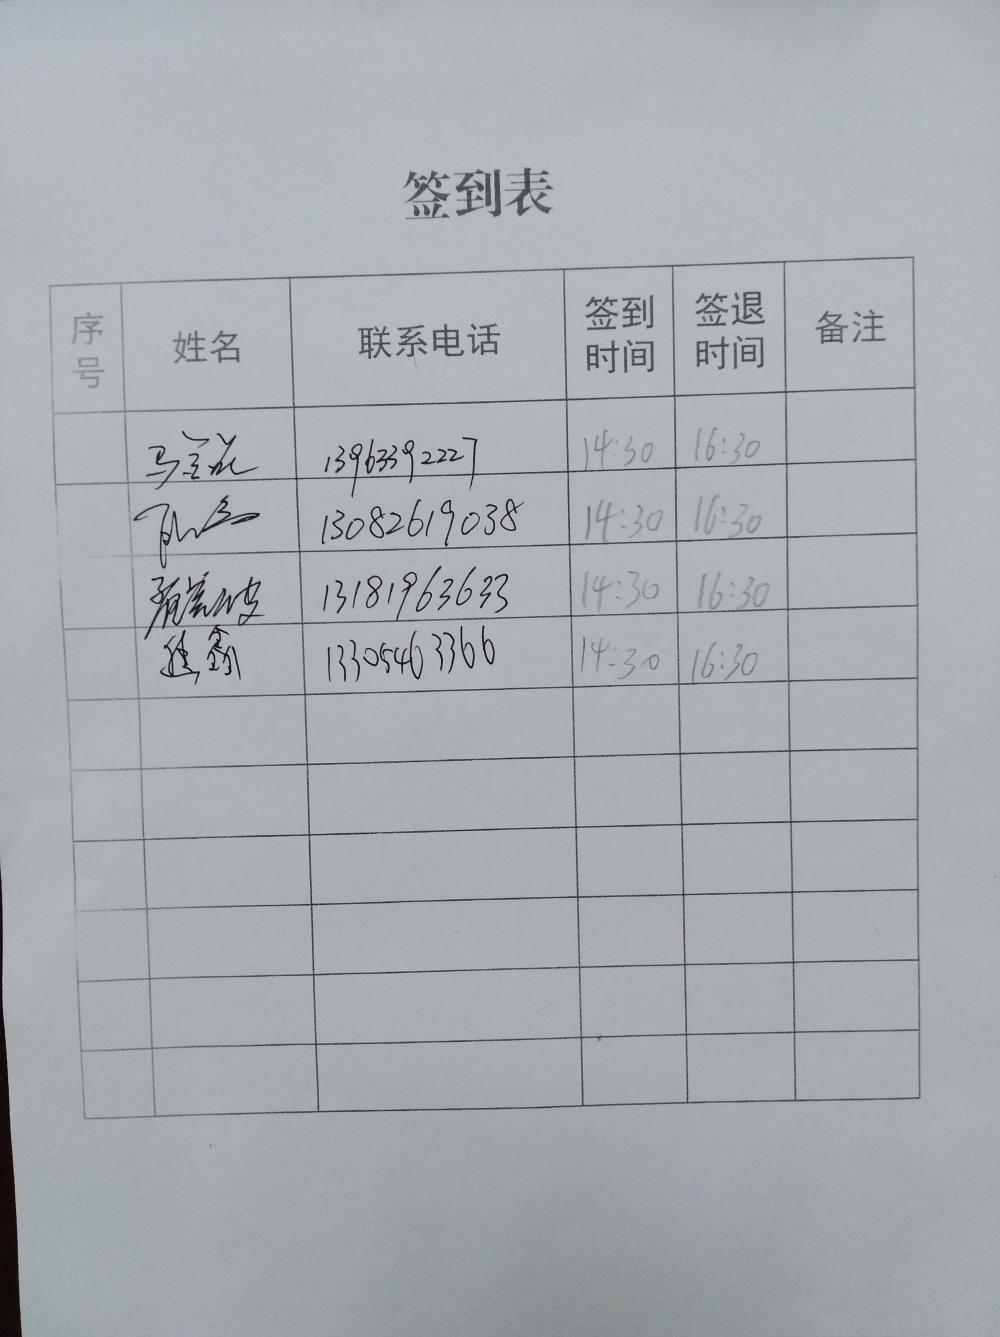 签到表
序号 姓名 联系电话 签到时间 签退时间 备注
13963392227 14:30 16:30
13082619038 14:30 16:30
13181963633 14:30 16:30
鑫 13305463366 14:30 16:30